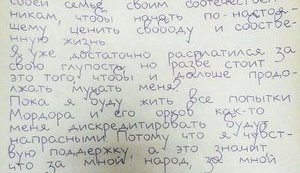 своей семье, своим соотечествен-
никам, чтобы начать по-настоя-
щему ценить свободу и собстве-
нную жизнь.
Я уже достаточно расплатился за
свою глупость, но разве стоит за
это того, чтобы и дальше продо-
лжать мучать меня?
Пока я буду жить все попытки
Мордора и его орков как-то
меня дискредитировать будут
напрасными. Потому что я чувст-
вую поддержку, а это значит
что за мной народ, за мной